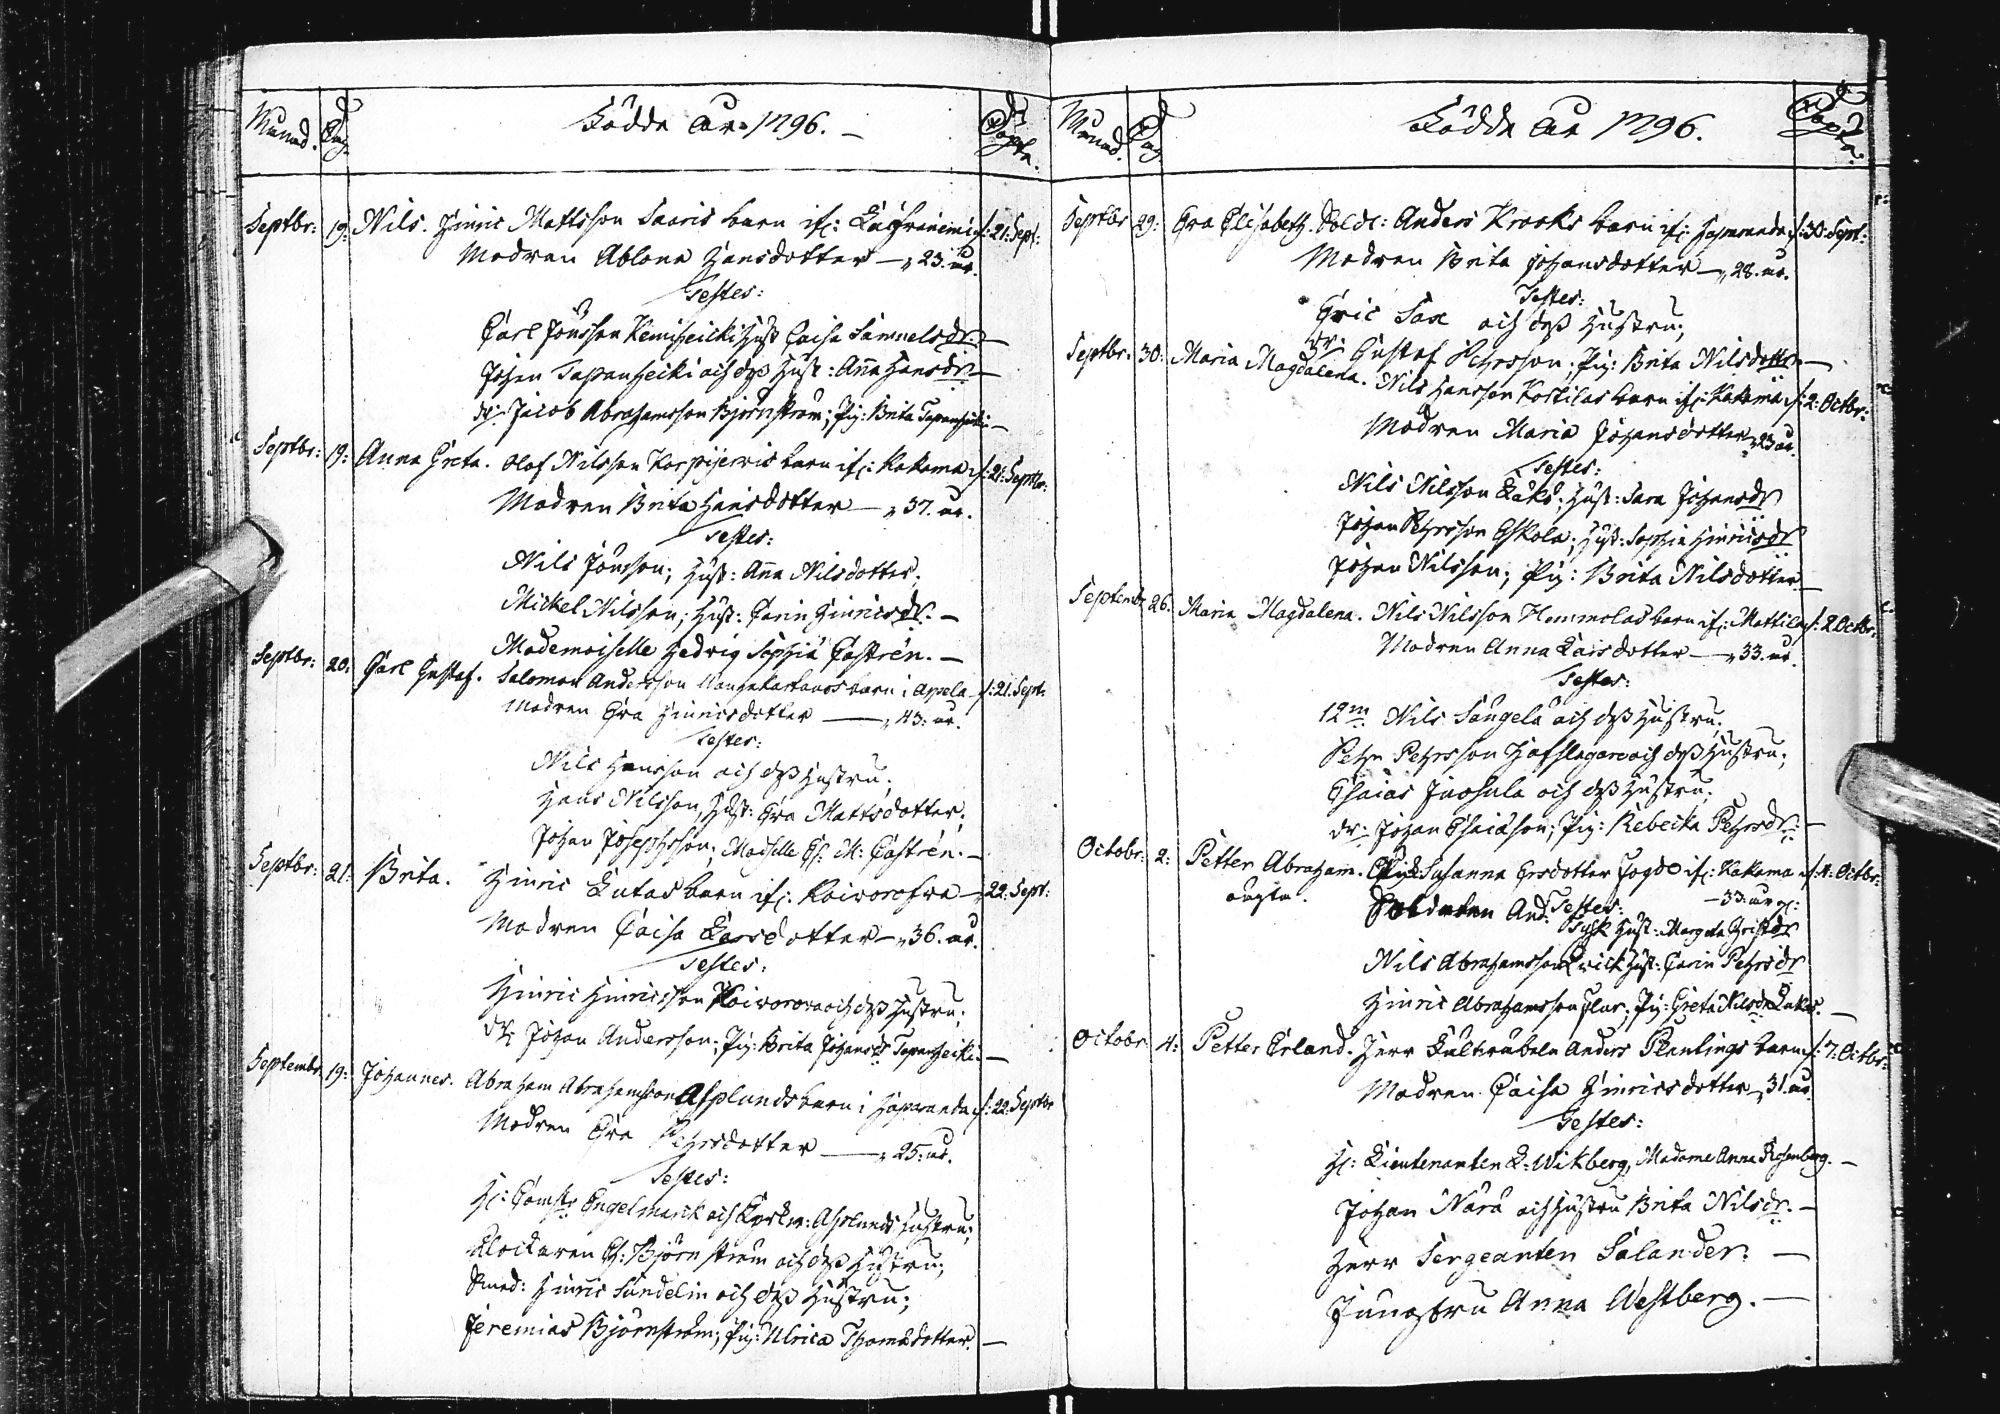 Månad. Dag. Födde År 1796. — Döpte.
Septbr: 19: Nils. Hinric Mattsson Saaris barn if: f: 21: Sept:
Modren Ablona Hansdotter — „ 23. år.
Testes:
Carl Jönsson Kemiheicki Hust Caisa Samuelsdr. —
Johan Tapanheicki och dess Hust: Anna Hansdr —
dr: Jacob Abrahamsson Björnström; Pig: Brita Tapanheicki —
Septbr: 19: Anna Greta. Olof Nilsson Korpijervis barn if: Kakama f: 21: Septbr:
Modren Brita Hansdotter — „ 37. år.
Testes:
Nils Jönsson; Hust: Anna Nilsdotter.
Mickel Nilsson; Hust: Carin Hinricsdr. —
Mademoiselle Hedvig Sophia Castrén. —
Septbr: 20: Carl Gustaf. Salomon Andersson barn i Arpela f: 21. Sept:
Modren Eva Hinricsdotter — „ 43: år.
Testes:
Nils Hansson och dess Hustru;
Hans Nilsson, Hust: Eva Mattsdotter;
Johan Josephsson; Maiselle M: Castrén. —
Septbr: 21: Brita. Hinric barn if: — 22: Sept:
Modren Caisa Larsdotter — „ 36. år.
Testes:
Hinric Hinricsson och dess Hustru;
dr: Johan Andersson; Pig: Brita Johansdr Tapanheicki. —
Septembr 19: Johannes. Abraham Abrahamsson Asplunds barn i Haparanda f: 22: Septbr
Modren Eva Pehrsdotter — „ 25: år.
Testes:
H: Engelmarck och Asplunds Hustru;
Klockaren Björnström och dess Hustru;
Smed: Hinric Sundelin och dess Hustru;
Jeremias Björnström; Pig: Ulrica Thomædotter. —
Månad. Dag Födde År 1796. Döpte.
Septbr 29: Eva Elisabeth. Soldt: Anders Krooks barn if: Haparanda f: 30: Sept:
Modren Brita Johansdotter — „ 28. år.
Testes:
Eric Sax och dess Hustru;
dr: Gustaf Pehrsson; Pig: Brita Nilsdotter —
Septbr: 30: Maria Magdalena. Nils Hansson Kostilas barn if: Kakama f: 2: Octbr:
Modren Maria Johansdotter „ 23 år.
Testes:
Nils Nilsson; Hust: Sara Johansdr
Johan Pehrsson Eskola; Hust: Sophia Hinricsdr
Johan Nilsson; Pig: Brita Nilsdotter —
Septembr 26. Maria Magdalena. Nils Nilsson Hommolas barn if: Mattila f: 2 Octbr:
Modren Anna Larsdotter — „ 33. år.
Testes:
12m Nils och dess Hustru;
Pehr Pehrsson Hofslagare och dess Hustru;
Esaias Juosula och dess Hustru;
dr: Johan Esaiason; Pig: Rebecka Pehrsdr: —
Octobr: 2: Petter Abraham. Pig: Susanna Ersdotter if: Kakama f: 4: Octbr:
oägta. — 33: år
Testes:
Soldaten And: Hust: Margeta
Nils Abrahamsson Hust: Carin Pehrsdr
Hinric Abrahamsson; Pig: Greta Nilsdr —
Octobr. 4: Petter Erland. Herr Anders Plantings barn f: 7: Octbr:
Modren Caisa Hinricsdotter „ 31 år.
Testes:
H: Lieutenanten L: Wikberg, Madame Anna Rosenberg. —
Johan Nara och Hustru Brita Nilsdr. —
Herr Sergeanten Salander. —
Jungfru Anna Westberg. —